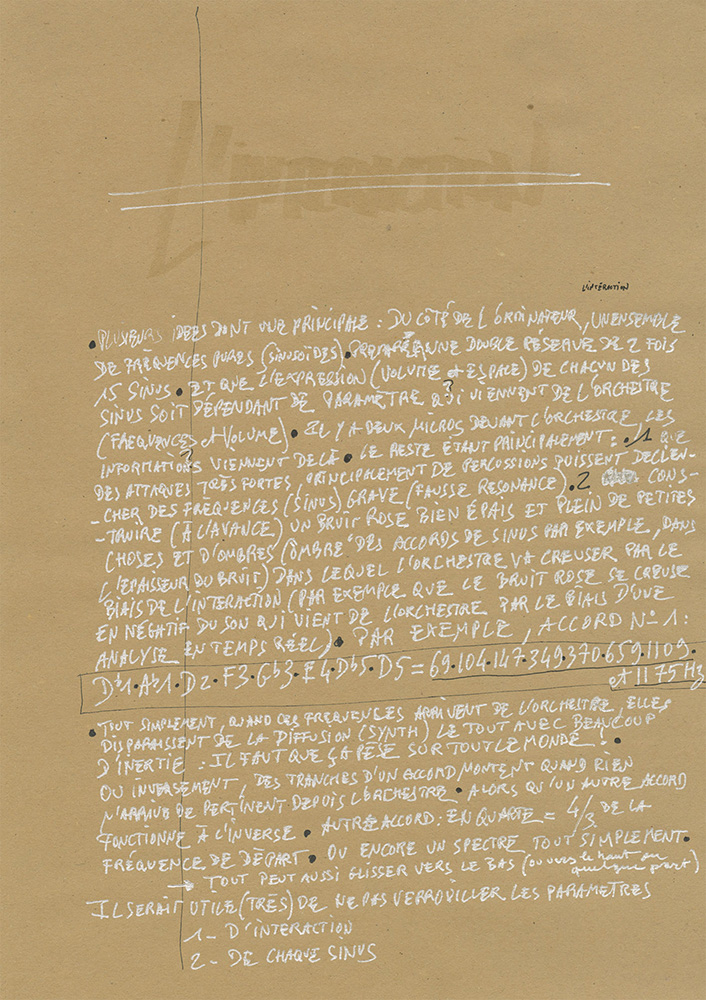 L'INTÉRACTION
• PLUSIEURS IDÉES DONT UNE PRINCIPALE : DU CÔTÉ DE L'ORDINATEUR, UN ENSEMBLE
DE FRÉQUENCES PURES (SINUSOÏDES) • UNE DOUBLE RÉSERVE DE 2 FOIS
15 SINUS • ET QUE L'EXPRESSION (VOLUME et ESPACE) DE CHACUN DES
SINUS SOIT DÉPENDANT DE PARAMÈTRE QUI VIENNENT DE L'ORCHESTRE
(FRÉQUENCES et VOLUME) • IL Y A DEUX MICROS DEVANT L'ORCHESTRE, LES
INFORMATIONS VIENNENT DE LÀ • LE RESTE ÉTANT PRINCIPALEMENT : • 1 QUE
DES ATTAQUES TRÈS FORTES, PRINCIPALEMENT DE PERCUSSIONS PUISSENT DÉCLEN-
-CHER DES FRÉQUENCES (SINUS) GRAVE (FAUSSE RESONANCE) • 2 CONS-
-TRUIRE (À L'AVANCE) UN BRUIT ROSE BIEN ÉPAIS ET PLEIN DE PETITES
CHOSES ET D'OMBRES (OMBRE DES ACCORDS DE SINUS PAR EXEMPLE, DANS
L'ÉPAISSEUR DU BRUIT) DANS LEQUEL L'ORCHESTRE VA CREUSER PAR LE
BIAIS DE L'INTERACTION (PAR EXEMPLE QUE LE BRUIT ROSE SE CREUSE
EN NÉGATIF DU SON QUI VIENT DE L'ORCHESTRE PAR LE BIAIS D'UNE
ANALYSE EN TEMPS RÉEL) • PAR EXEMPLE, ACCORD N° 1 :
Db1•Ab1•D2•F3•Gb3•E4•Db5•D5=69•104•147•349•370•659•1109•
et 1175Hz
• TOUT SIMPLEMENT, QUAND CES FREQUENCES ARRIVENT DE L'ORCHESTRE, ELLES
DISPARAISSENT DE LA DIFFUSION (SYNTH) LE TOUT AVEC BEAUCOUP
D'INERTIE : IL FAUT QUE ÇA PÈSE SUR TOUT LE MONDE ! •
OU INVERSEMENT, DES TRANCHES D'UN ACCORD MONTENT QUAND RIEN
N'ARRIVE DE PERTINENT DEPUIS L'ORCHESTRE • ALORS QU'UN AUTRE ACCORD
FONCTIONNE À L'INVERSE • AUTRE ACCORD : EN QUARTE = 4/3 DE LA
FRÉQUENCE DE DÉPART • OU ENCORE UN SPECTRE TOUT SIMPLEMENT •
→ TOUT PEUT AUSSI GLISSER VERS LE BAS (ou vers le haut ou
quelque part)
IL SERAIT UTILE (TRÈS) DE NE PAS VERROUILLER LES PARAMETRES
1 - D'INTERACTION
2 - DE CHAQUE SINUS